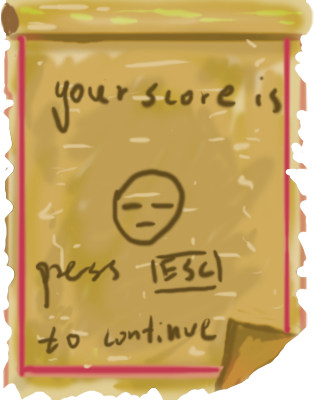 your score is
press |ESC|
to continue